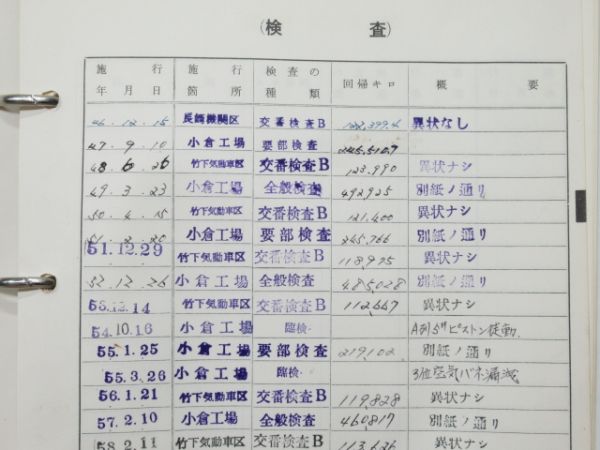 (検 査)
施行年月日 施行箇所 検査の種類 回帰キロ 概要
46.12.15 長崎機関区 交番検査B 122,399.4 異状なし
47.9.10 小倉工場 要部検査 245,510.9
48.6.26 竹下気動車区 交番検査B 123,990 異状ナシ
49.3.23 小倉工場 全般検査 492925 別紙ノ通リ
50.4.15 竹下気動車区 交番検査B 121,400 異状ナシ
51.2.20 小倉工場 要部検査 245,766 別紙ノ通リ
51.12.29 竹下気動車区 交番検査B 118,975 異状ナシ
52.12.26 小倉工場 全般検査 485,028 別紙ノ通リ
53.12.14 竹下気動車区 交番検査B 112,667 異状ナシ
54.10.16 小倉工場 臨検 ピストン
55.1.25 小倉工場 要部検査 219,102 別紙ノ通リ
55.3.26 小倉工場 臨検 3位空気バネ漏洩
56.1.21 竹下気動車区 交番検査B 119,828 異状ナシ
57.2.10 小倉工場 全般検査 460817 別紙ノ通リ
58.2.11 竹下気動車区 交番検査B 113,626 異状ナシ